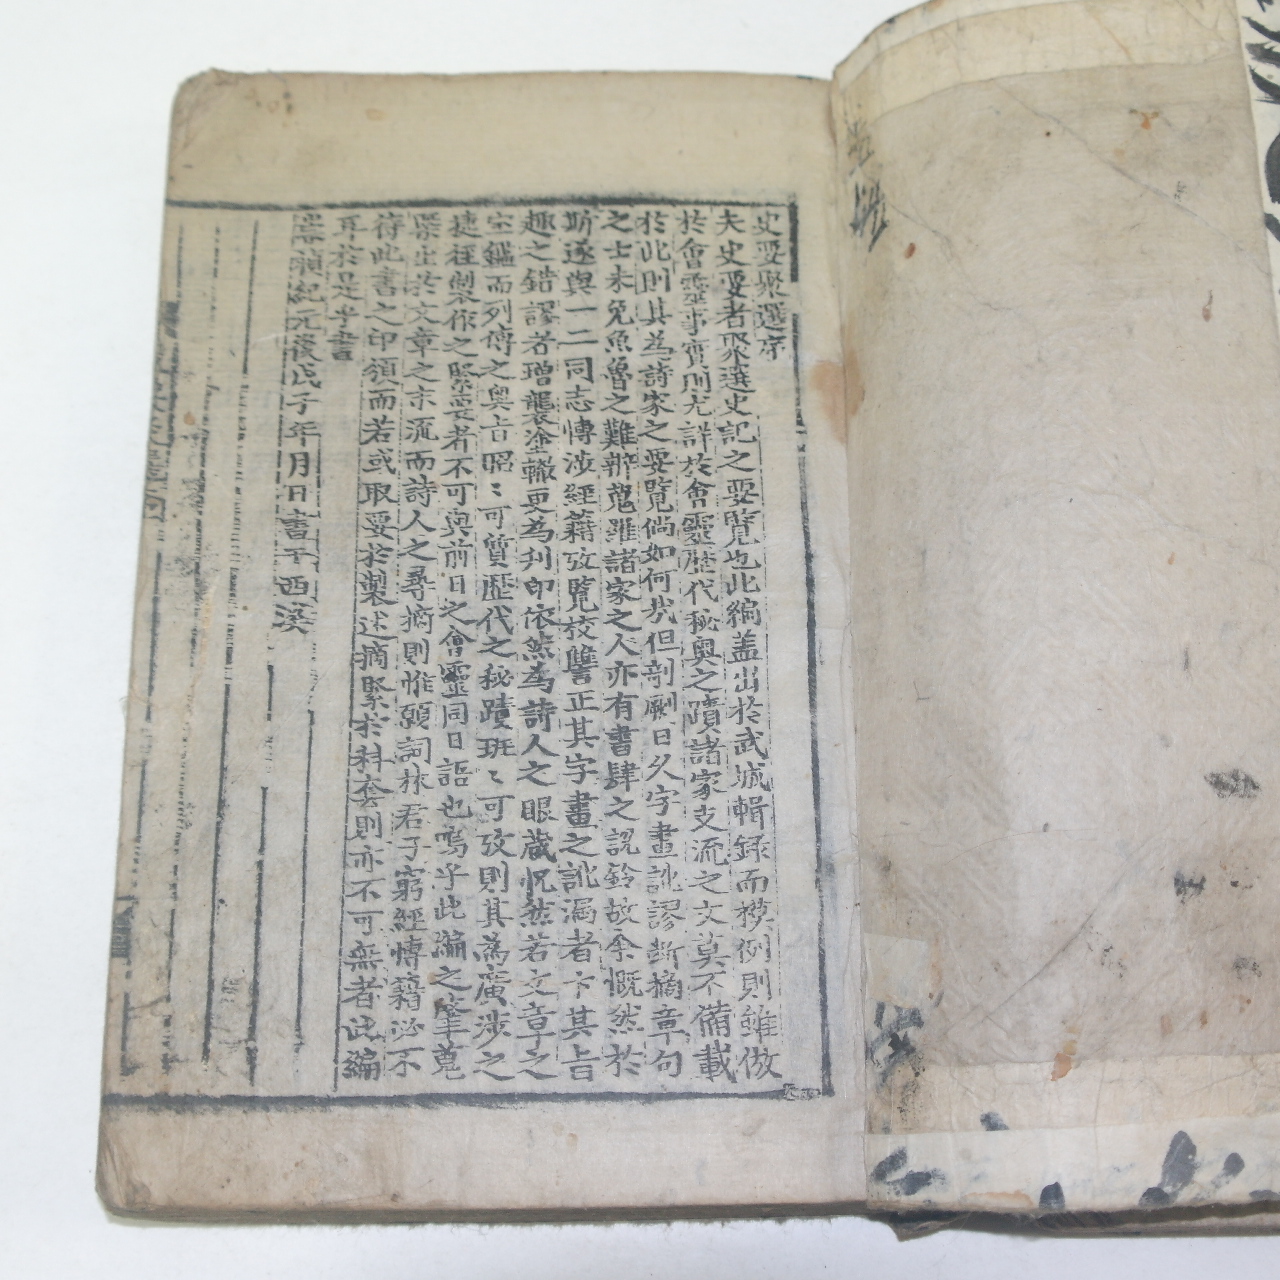 史要聚選序
夫史要者聚選史記之要覽也此編盖出於武城輯錄而模例則雖倣
於會靈事實則尤詳於會靈歷代秘奥之蹟諸家支流之文莫不備載
於此則其為詩家之要覽倘如何哉但剞劂日久字畫訛謬断摘章句
之士未免魚魯之難辨蒐羅諸家之人亦有書肆之說鈴故余慨然於
斯遂與一二同志愽涉經籍攷覽校讐正其字畫之訛漏者卞其旨
趣之錯謬者增襲塗轍更為刋印依然為詩人之眼藏怳然若文章之
宝鑑而列傳之奥旨昭〻可質歷代之秘蹟班〻可攷則其為廣涉之
捷徑製作之緊要者不可與前日之會靈同日語也嗚乎此編之肇蒐
槩出於文章之末流而詩人之尋摘則惟願詞林君子窮經愽籍必不
待此書之印須而若或取要於製述摘緊於科套則亦不可無者此編
耳於是乎書
崇禎紀元後戊子年月日書于西溪